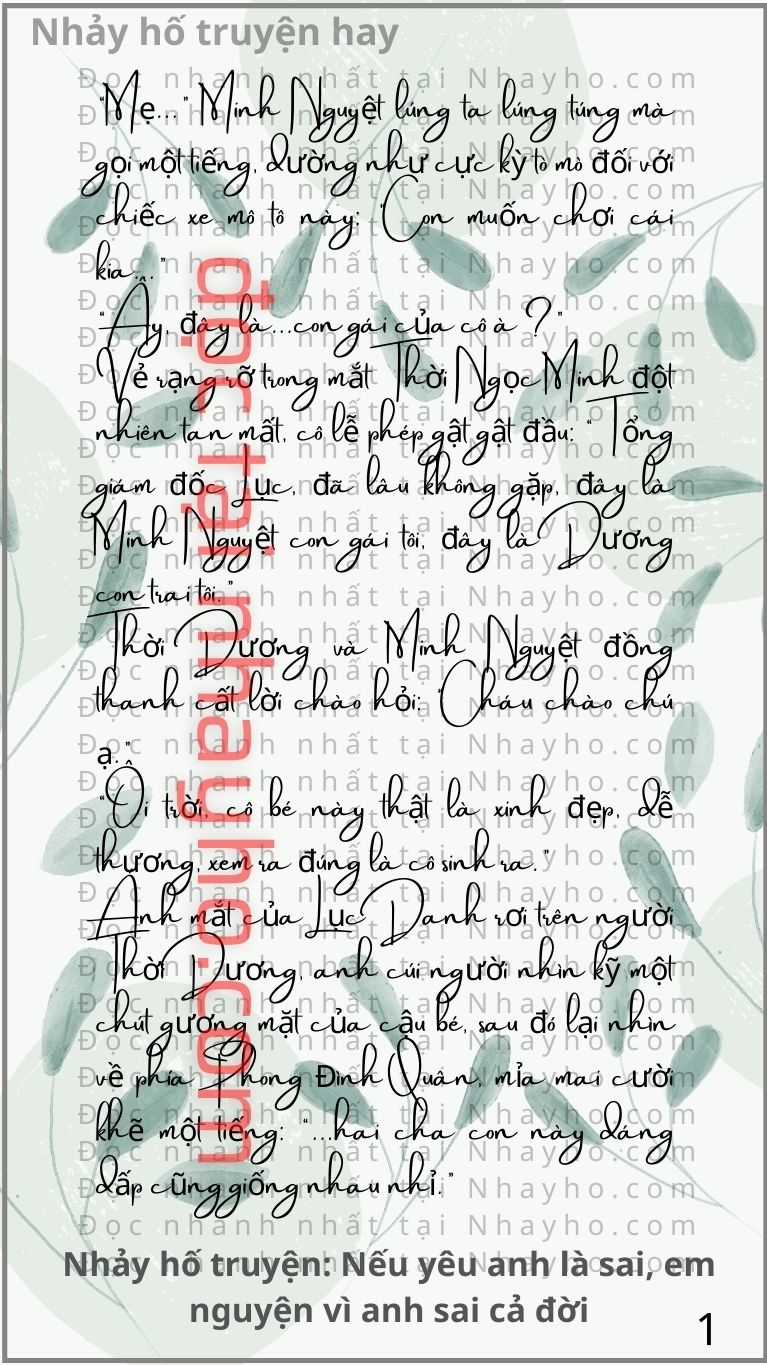 Nhảy hố truyện hay
Đọc nhanh nhất tại Nhayho.com
đọc tại nhayho.com
"Mẹ..." Minh Nguyệt lúng ta lúng túng mà
gọi một tiếng, dường như cực kỳ tò mò đối với
chiếc xe mô tô này: "Con muốn chơi cái
kia..."
"Ây, đây là...con gái của cô à ?"
Vẻ rạng rỡ trong mắt Thời Ngọc Minh đột
nhiên tan mất, cô lễ phép gật gật đầu: " Tổng
giám đốc Lục, đã lâu không gặp, đây là
Minh Nguyệt con gái tôi, đây là Dương
con trai tôi."
Thời Dương và Minh Nguyệt đồng
thanh cất lời chào hỏi: "Cháu chào chú
ạ."
"Ôi trời, cô bé này thật là xinh đẹp, dễ
thương, xem ra đúng là cô sinh ra."
Ánh mắt của Lục Danh rơi trên người
Thời Dương, anh cúi người nhìn kỹ một
chút gương mặt của cậu bé, sau đó lại nhìn
về phía Phong Đình Quân, mỉa mai cười
khẽ một tiếng: "...hai cha con này dáng
dấp cũng giống nhau nhỉ."
Nhảy hố truyện: Nếu yêu anh là sai, em
nguyện vì anh sai cả đời
1